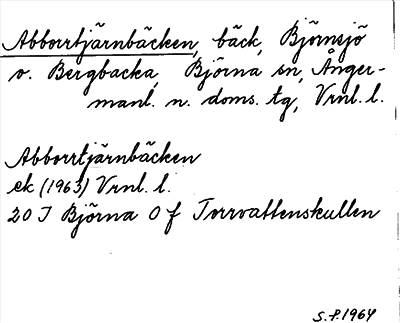 Abborrtjärnbäcken, bäck, Björnsjö
o. Bergbacka, Björna sn, Ånger-
manl. n. doms. tg, Vrnl. l.
Abborrtjärnbäcken
ek (1963) Vrnl. l.
20 J Björna 0 f Torrvattenskullen
S.P. 1964